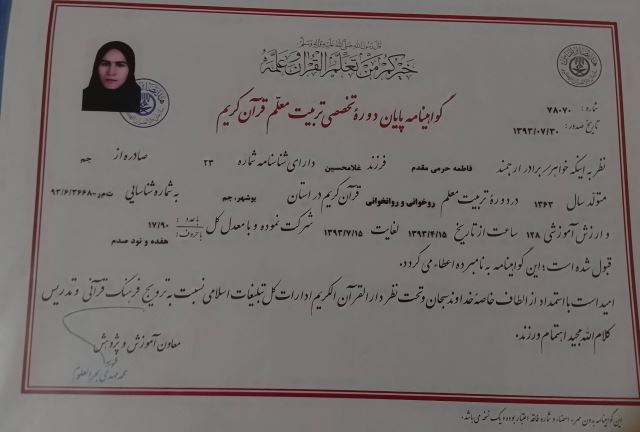 قال رسول الله صلی الله علیه و آله و سلم
خیرکم من تعلم القرآن و علمه
گواهینامه پایان دورهٔ تخصصی تربیت معلم قرآن کریم
شماره : ۷۸۰۷۰
تاریخ صدور : ۱۳۹۳/۰۷/۳۰
نظر به اینکه خواهر/برادر ارجمند فاطمه حرمی مقدم فرزند غلامحسین دارای شناسنامه شماره ۲۳ صادره از جم
متولد سال ۱۳۶۳ در دورهٔ تربیت معلم روخوانی و روانخوانی قرآن کریم در استان بوشهر، جم به شماره شناسایی ت‌م‌ر-۹۳/۶/۳۶۶۸
و ارزش آموزشی ۱۲۸ ساعت از تاریخ ۱۳۹۳/۴/۱۵ لغایت ۱۳۹۳/۷/۱۵ شرکت نموده و با معدل کل با عدد : ۱۷/۹۰
با حروف : هفده و نود صدم
قبول شده است؛ این گواهینامه به نامبرده اعطاء می گردد.
امید است با استمداد از الطاف خاصهٔ خداوند سبحان و تحت نظر دارالقرآن الکریم ادارات کل تبلیغات اسلامی نسبت به ترویج فرهنگ قرآنی و تدریس
کلام الله مجید اهتمام ورزند.
معاون آموزش و پژوهش
محمد مهدی بحرالعلوم
این گواهینامه بدون مهر، امضاء و شماره فاقد اعتبار بوده و یک نسخه می باشد.